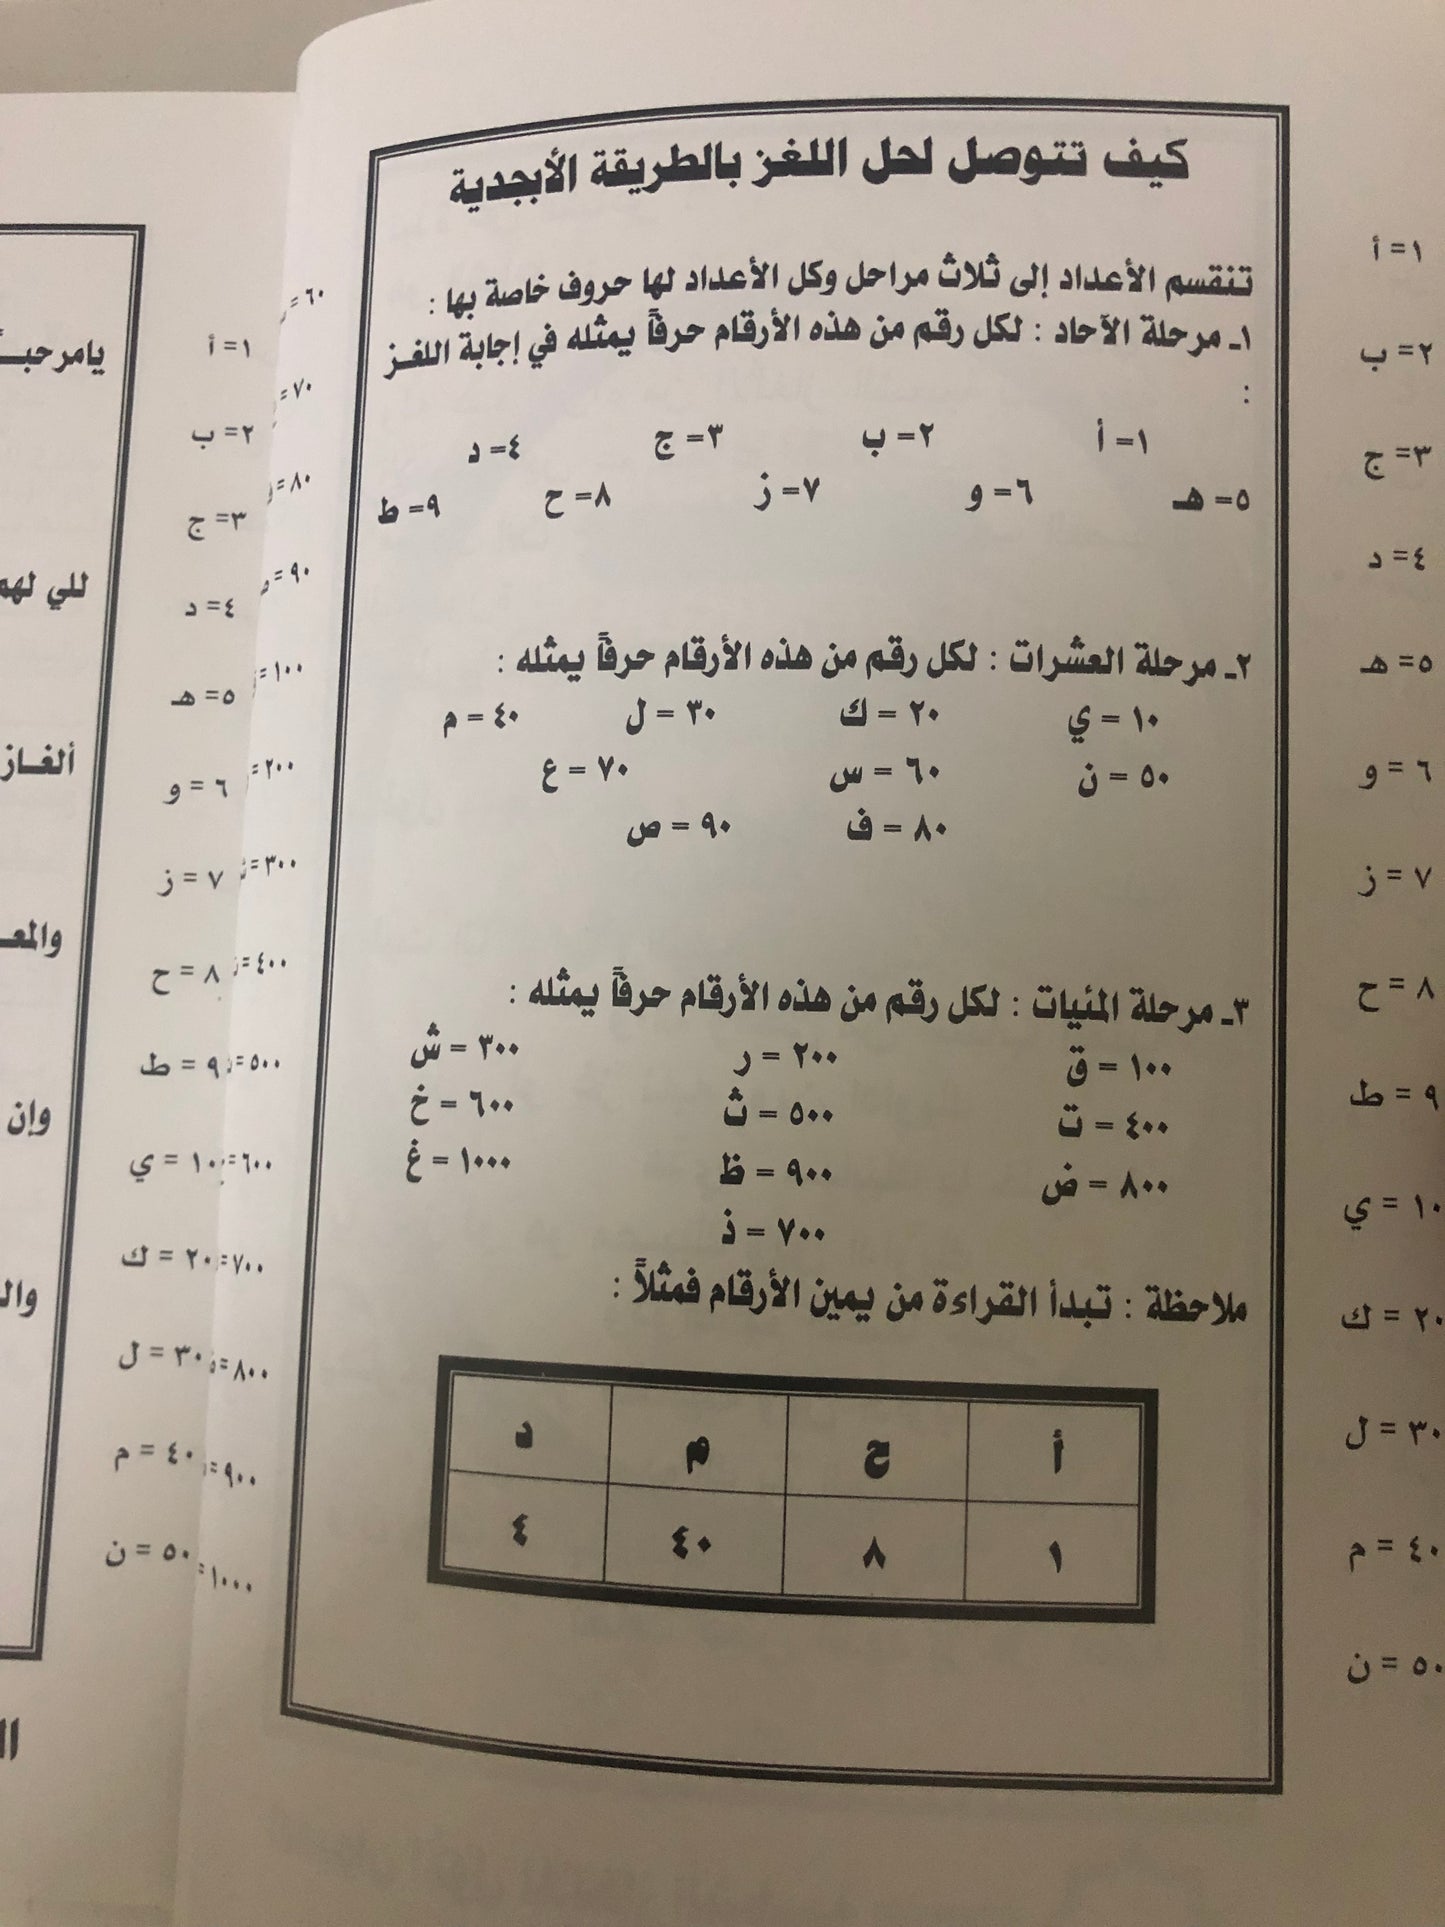 كيف تتوصل لحل اللغز بالطريقة الأبجدية
تنقسم الأعداد إلى ثلاث مراحل وكل الأعداد لها حروف خاصة بها :
١ـ مرحلة الآحاد : لكل رقم من هذه الأرقام حرفاً يمثله في إجابة اللغـز
:
١= أ ٢= ب ٣= ج ٤= د
٥= هـ ٦= و ٧= ز ٨= ح ٩= ط
٢ـ مرحلة العشرات : لكل رقم من هذه الأرقام حرفاً يمثله :
١٠ = ي ٢٠ = ك ٣٠ = ل ٤٠ = م
٥٠ = ن ٦٠ = س ٧٠ = ع
٨٠ = ف ٩٠ = ص
٣ـ مرحلة المئيات : لكل رقم من هذه الأرقام حرفاً يمثله :
١٠٠ = ق ٢٠٠ = ر ٣٠٠ = ش
٤٠٠ = ت ٥٠٠ = ث ٦٠٠ = خ
٨٠٠ = ض ٩٠٠ = ظ ١٠٠٠ = غ
٧٠٠ = ذ
ملاحظة : تبدأ القراءة من يمين الأرقام فمثلاً :
أ ح م د
١ ٨ ٤٠ ٤
١= أ
٢= ب
٣= ج
٤= د
٥= هـ
٦ = و
٧ = ز
٨ = ح
٩ = ط
١٠ = ي
٢٠ = ك
٣٠ = ل
٤٠ = م
٥٠ = ن
٦٠ =
٧٠ =
٨٠ =
٩٠ =
١٠٠ =
٢٠٠ =
٣٠٠ =
٤٠٠ =
٥٠٠ =
٦٠٠ =
٧٠٠ =
٨٠٠ =
٩٠٠ =
١٠٠٠ =
١= أ
٢= ب
٣= ج
٤= د
٥= هـ
٦ = و
٧ = ز
٨ = ح
٩ = ط
١٠ = ي
٢٠ = ك
٣٠ = ل
٤٠ = م
٥٠ = ن
للي
ألغـاز
وإن